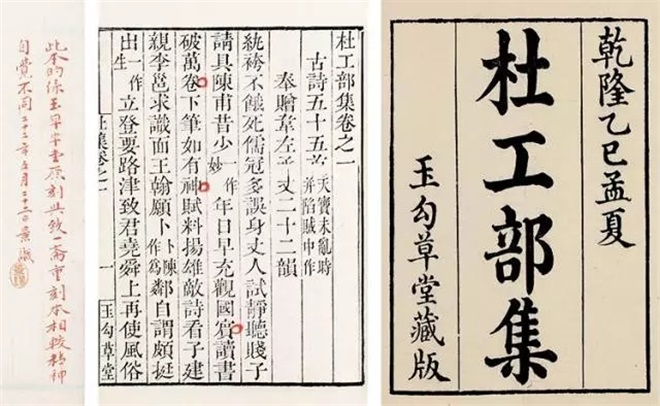 乾隆乙巳孟夏
杜工部集
玉勾草堂藏版
杜工部集卷之一
古詩五十五首 天寶未亂時并陷賊中作
奉贈韋左丞丈二十二韻
紈袴不餓死儒冠多誤身丈人試靜聽賤子
請具陳甫昔少一作妙年日早充觀國賓讀書
破萬卷下筆如有神賦料揚雄敵詩看子建
親李邕求識面王翰願卜卜陳作為鄰自謂頗挺
出一作生立登要路津致君堯舜上再使風俗
杜集卷之一 一 玉勾草堂
此本的係玉草堂原刻與致一齋重刻本相較精神
自覺不同二十二年五月二十二日景